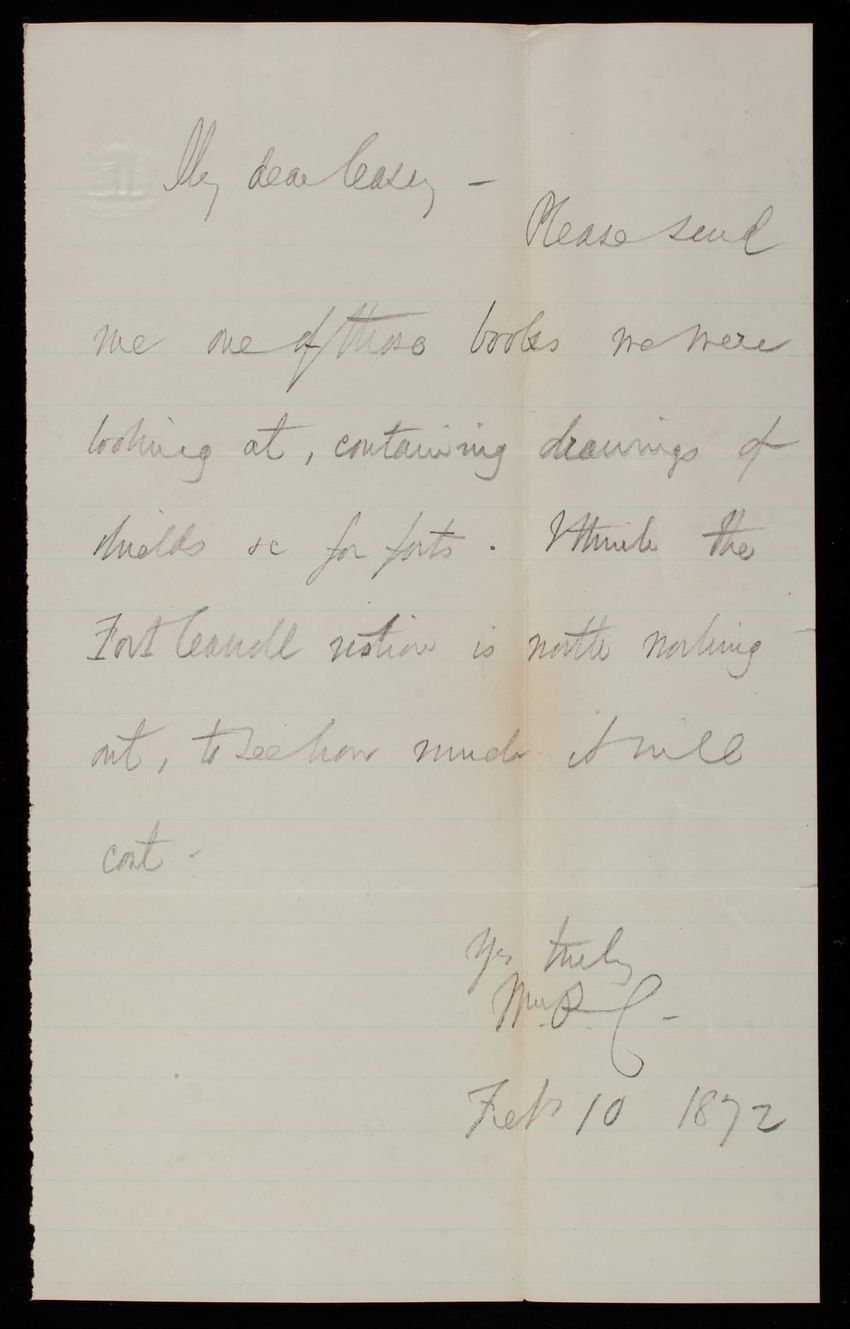 My dear Casey -
Please send
me one of those books we were
looking at, containing drawings of
shields &c for forts. I think the
Fort Carroll notion is worth working
out, to see how much it will
cost -
Yrs truly
Wm P. C -
Feb 10 1872